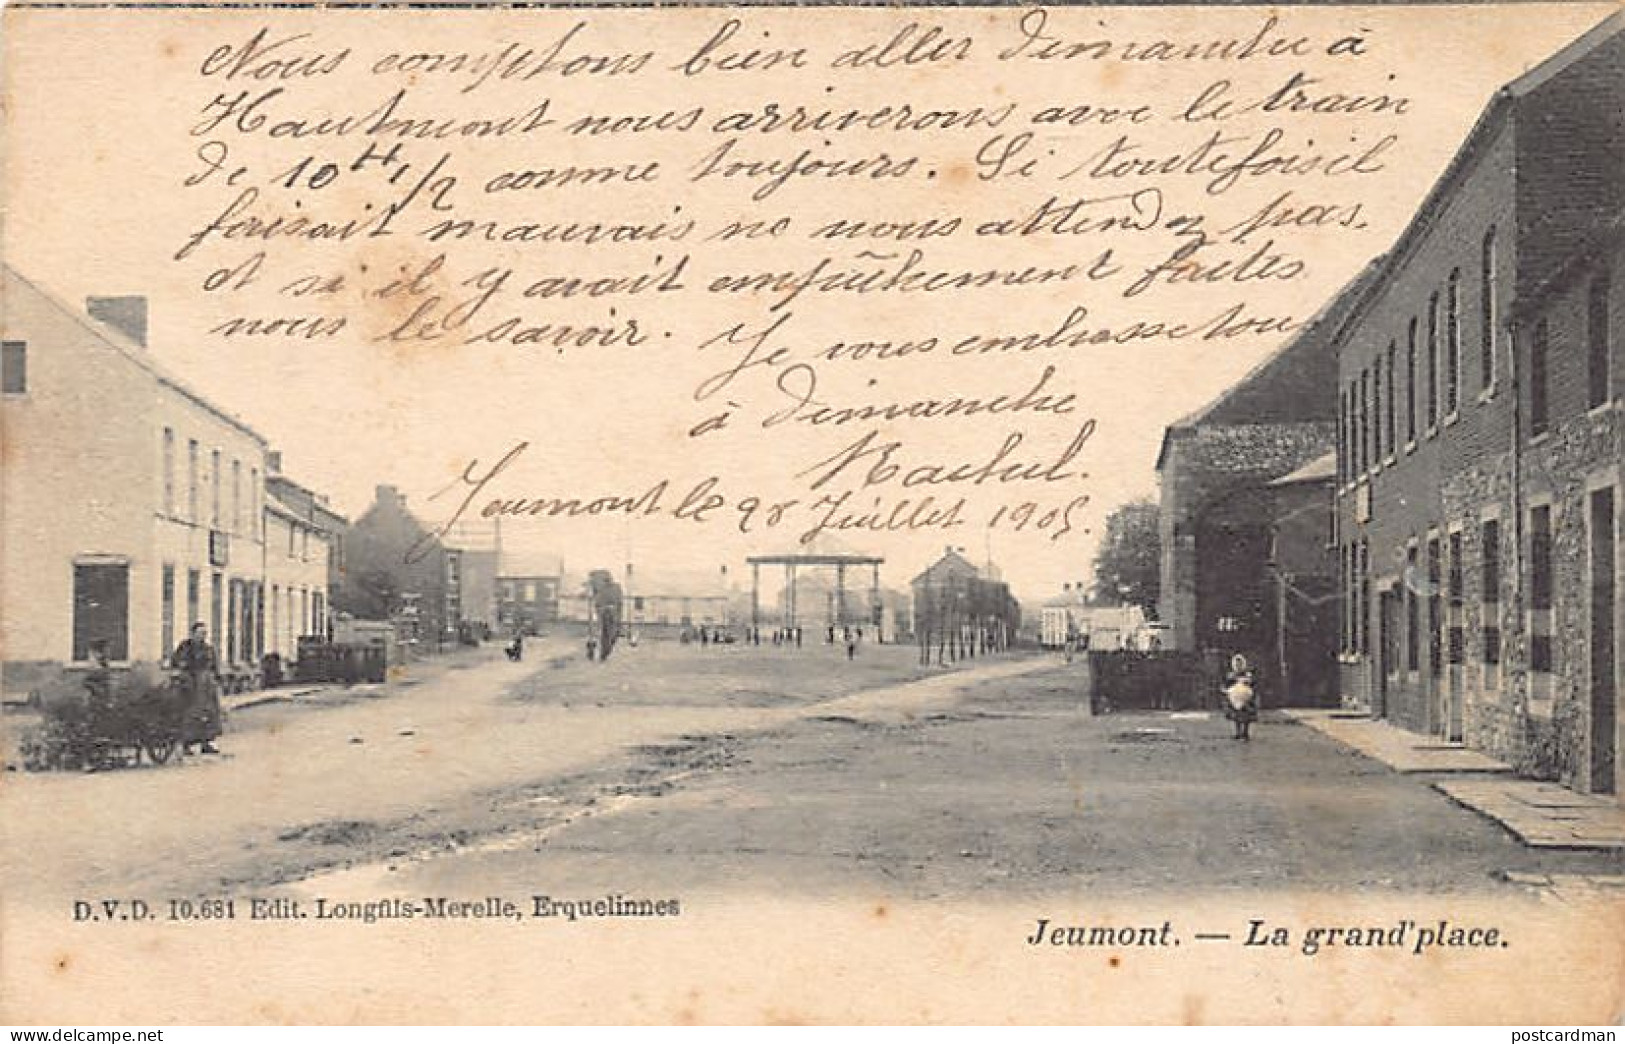 Nous comptons bien aller dimanche à
Hautmont nous arriverons avec le train
de 10 H 1/2 comme toujours. Si toutefois il
faisait mauvais ne nous attendez pas.
et si il y avait empêchement faites
nous le savoir. Je vous embrasse tous
à dimanche
Rachel.
Jeumont le 28 Juillet 1905.
D.V.D. 10.681 Edit. Longfils-Merelle, Erquelinnes
Jeumont. — La grand'place.
postcardman